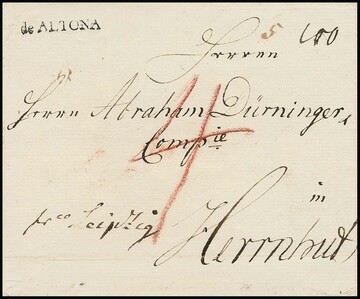 de ALTONA
5
Herren
Herrn Abraham Dürninger
Compie
4
in
frco Leipzig
Herrnhut